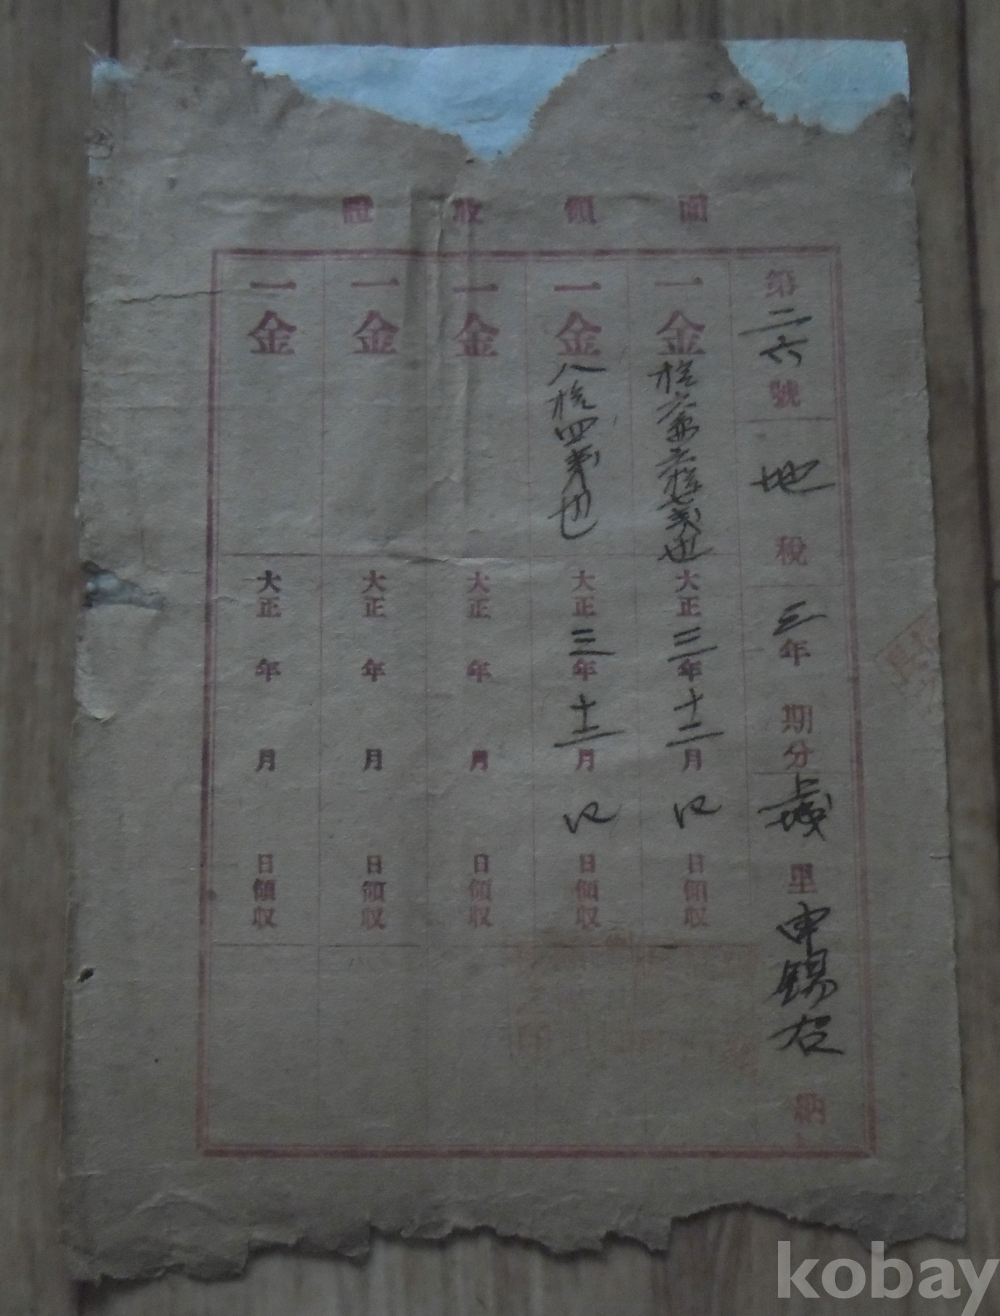 面領收證
第二六號 地稅 三年 期分 上城里 申錫右 納
一金拾六兩六拾七戔也 大正三年十二月 日領収
一金八拾四戔也 大正三年十二月 日領収
一金 大正 年 月 日領収
一金 大正 年 月 日領収
一金 大正 年 月 日領収
kobay